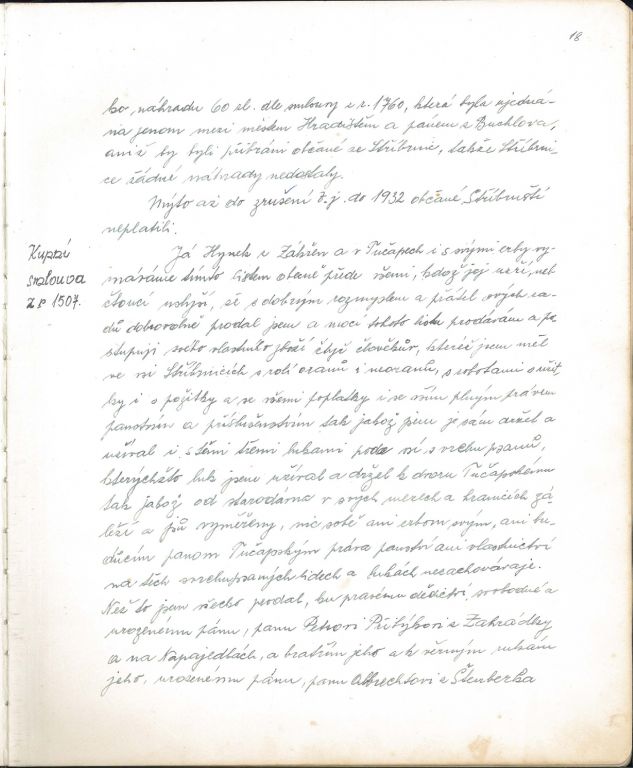 18
ho, náhradu 60 zl. dle smlouvy z r. 1760, která byla ujedná-
na jenom mezi městem Hradištěm a pánem z Buchlova,
aniž by byli přibráni občané ze Stříbrnic, takže Stříbrni-
ce žádné náhrady nedostaly.
Mýto až do zrušení t. j. do 1932 občané Stříbničtí
neplatili.
Kupní
smlouva
z r 1507.
Já Hynek z Záhřen a v Tučapech i s svými erby vy-
znáváme tímto listem obecně přede všemi, kdož jej uzří, neb
čtoucí uslyší, že s dobrým rozmyslem a přátel svých ra-
dú dobrovolně prodal jsem a mocí tohoto listu prodávám a po-
stupuji svého vlastního zboží čtyř člověkův, kteréž jsem měl
ve vsi Stříbrnicích s rolí oranú i neoranú, s robotami s užit-
ky i s požitky a se všemi poplatky i se vším plným právem
panstvím a příslušenstvím tak jakož jsem je sám držel a
užíval i s těmi třemi lukami pode vsí svrchu psanú,
kterýchžto luk jsem užíval a držel k dvoru Tučapskému
tak jakož od starodávna v svých mezech a hranicích zá-
leží a jsú vyměřeny, nic sobě ani erbom svým, ani bu-
dúcím pánom Tučapským práva panství ani vlastnictví
na těch svrchupsaných lidech a lukách nezachovávaje.
Než to jsem všecko prodal, ku pravému dědictví, svobodně a
urozenému pánu, panu Petrovi Přibýkovi z Zahrádky
a na Napajedlách, a bratřím jeho a k věrným rukám
jeho, urozenému pánu, panu Albrechtovi z Šternberka